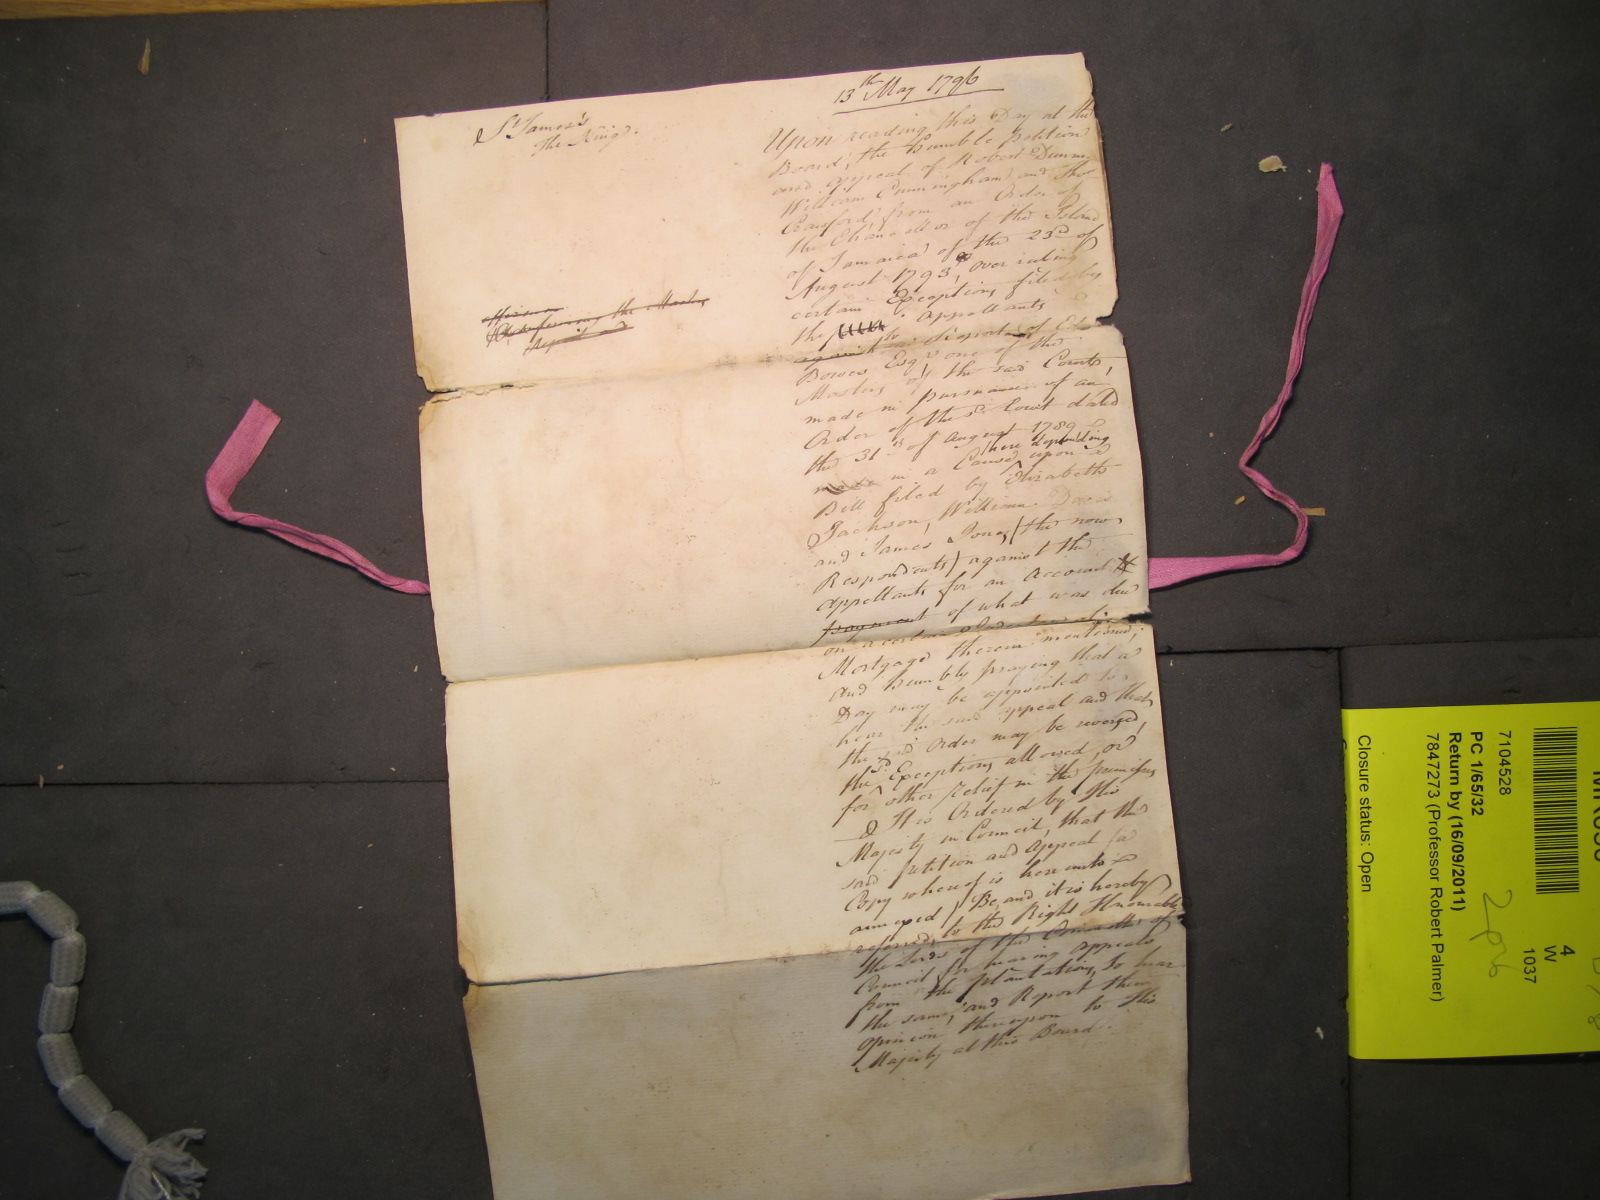 13th May 1796
St James's
The King.
Upon reading this Day at the
Board, the humble Petition
and appeal of Robert
William Cunningham and Thos
Crauford from an Order of
the Chancellor of the Island
of Jamaica of the 23d of
August 1793, over ruling
certain Exceptions filed by
the Appellants
against a Report of
Bowes Esqr one of the
Masters of the said Court,
made in pursuance of an
Order of the sd Court dated
the 31st of August 1789
here depending
made in a Cause upon a
Bill filed by Elizabeth
Jackson, William
and James Jones (the now
Respondents) against the
Appellants for an Account
payment of what was due
on a certain
Mortgage therein mentioned;
and humbly praying that a
Day may be appointed to
hear the said appeal and that
the said Order may be reversed,
the sd Exceptions allowed, or
for other relief in the premises
It is Ordered by His
Majesty in Council, that the
said Petition and Appeal (a
Copy whereof is hereunto
annexed) Be, and it is hereby
referred, to the Right Honourable
the Lords of the Committee of
Council for hearing appeals
from the plantations, to hear
the same, and Report their
opinion thereupon to His
Majesty at this Board.
7104528
PC 1/65/32
Return by (16/09/2011)
7847273 (Professor Robert Palmer)
Closure status: Open
4
W
1037